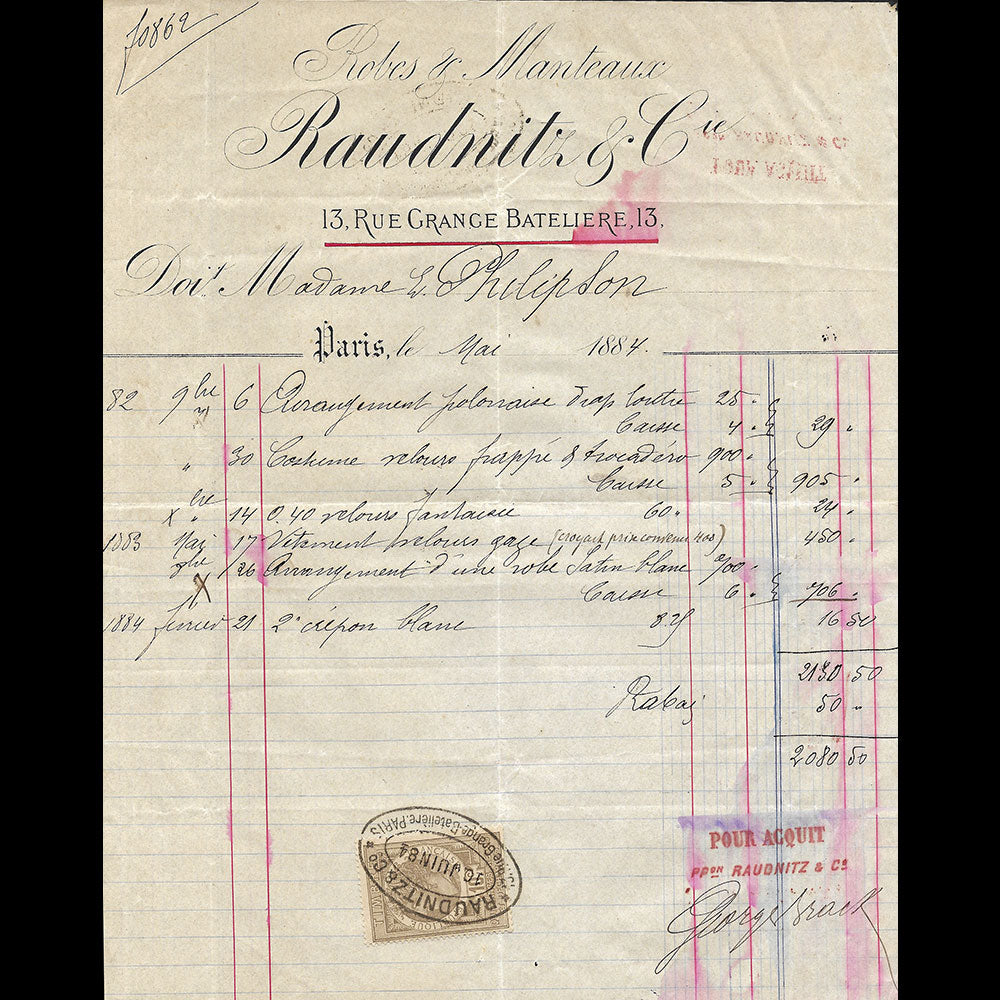 f0862
Robes & Manteaux
Raudnitz & Cie
13, RUE GRANGE BATELIERE, 13,
Doit Madame L. Philipson
Paris, le Mai 1884.
82 9bre 6 Arrangement polonaise drap loutre 25 "
Caisse 4 " 29 "
" 30 Costume velours frappé & trocadéro 900 "
Caisse 5 " 905 "
X " 14 0.40 velours fantaisie 60 " 24 "
1883 Mai 17 Vêtement velours gaze (croyait prix convenu 400) 450 "
X 26 Arrangement d'une robe Satin blanc 700 "
Caisse 6 " 706 "
1884 février 21 2 crépon blanc 8 25 16 50
2130 50
Rabais 50 "
2080 50
13, Rue Grange-Batelière. PARIS
16 JUIN 84
RAUDNITZ & Co
POUR ACQUIT
PPON RAUDNITZ & Co